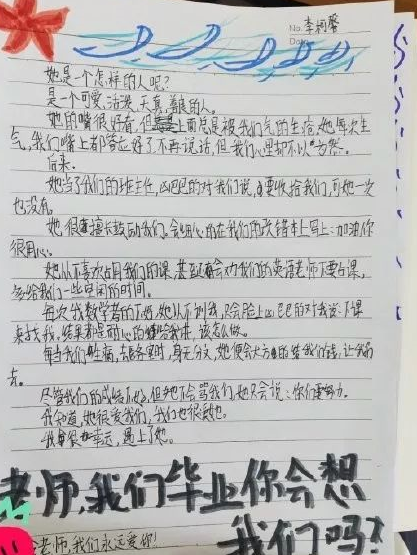 No. 李柯馨
Date
她是一个怎样的人呢?
是一个可爱、活泼、天真、善良的人。
她的嘴很好看,但上面总是被我们气的生疮,她每次生
气,我们嘴上都答应好了不再说话,但我们心里却不以为然。
后来,
她当了我们的班主任,凶巴巴的对我们说,要收拾我们,可她一次
也没有。
她很喜欢鼓励我们,会细心的在我们的改错本上写上:加油,你
很用心。
她从不喜欢占用我们的课,甚至还会为我们的英语老师下要占课,
多给我们一些空闲的时间。
每次我数学考的不好,她从不训我,只会脸上凶巴巴的对我说:下课
来找我,结果都是耐心的给我讲,该怎么做。
每当我们生病,去医务室时,身无分文,她便会大方的给我们钱,让我们
去。
尽管我们的成绩不好,但她不会骂我们,她只会说:你们要努力。
我知道,她很爱我们,我们也很爱她。
我很幸运,遇上了她。
老师,我们毕业你会想
我们吗?
老师,我们永远爱你!